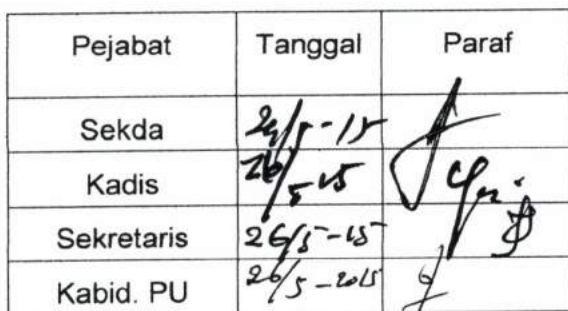 Pejabat Tanggal Paraf
Sekda 29/5-15
Kadis 26/5-15
Sekretaris 26/5-15
Kabid. PU 26/5-2015